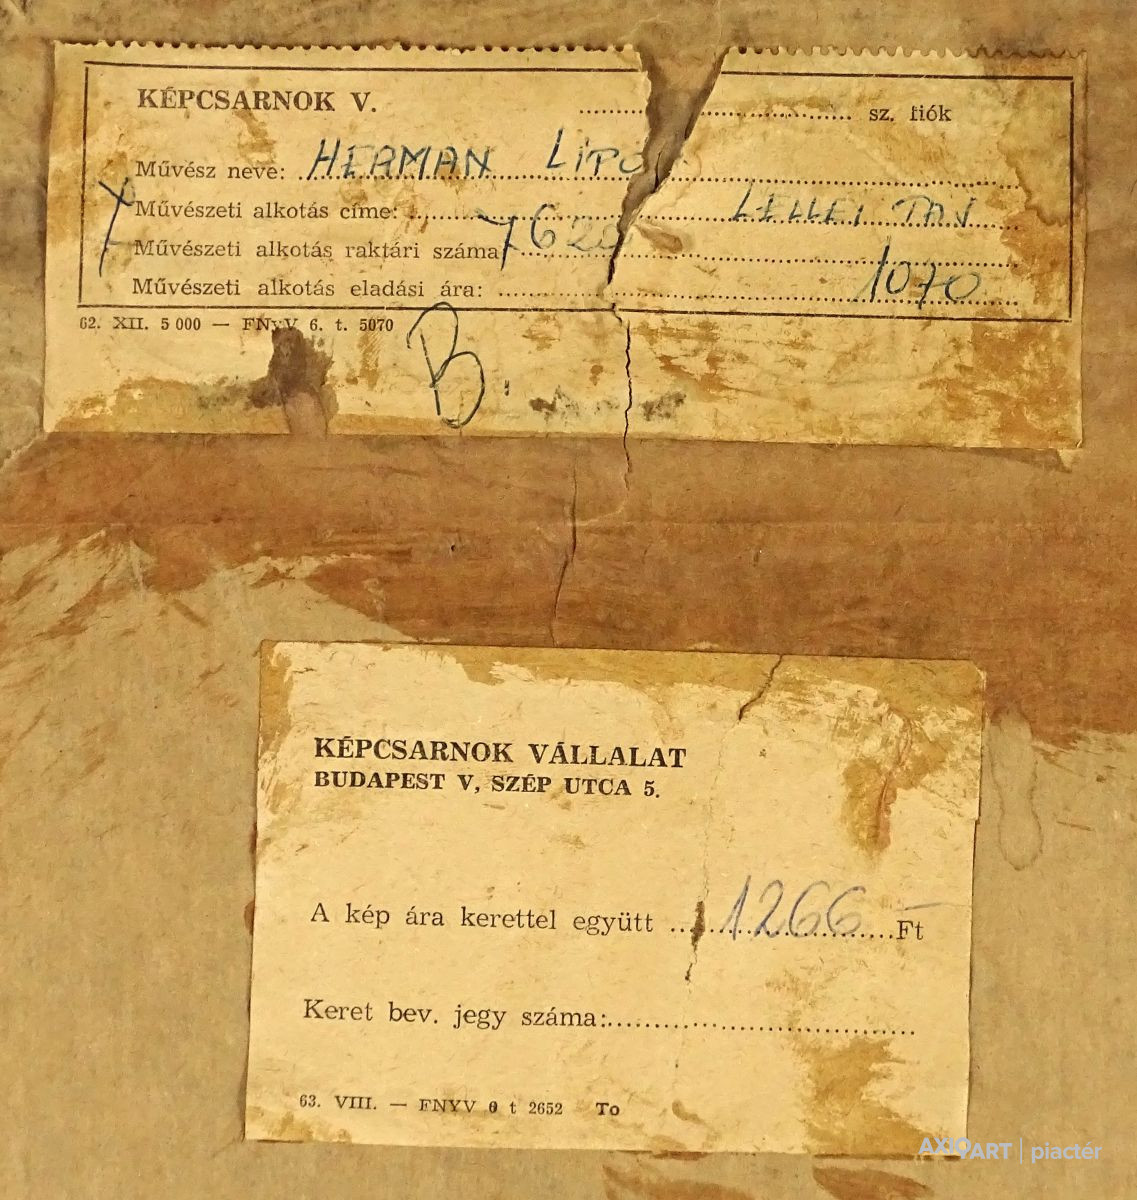 KÉPCSARNOK V. .................... sz. fiók
Művész neve: HERMAN LIPÓT
Művészeti alkotás címe: LELLEI TÁJ
Művészeti alkotás raktári száma
Művészeti alkotás eladási ára: 1070
62. XII. 5 000 — FNyV 6. t. 5070
B.
KÉPCSARNOK VÁLLALAT
BUDAPEST V, SZÉP UTCA 5.
A kép ára kerettel együtt 1266 Ft
Keret bev. jegy száma:....................
63. VIII. — FNYV 6 t 2652 To
AXIOART | piactér